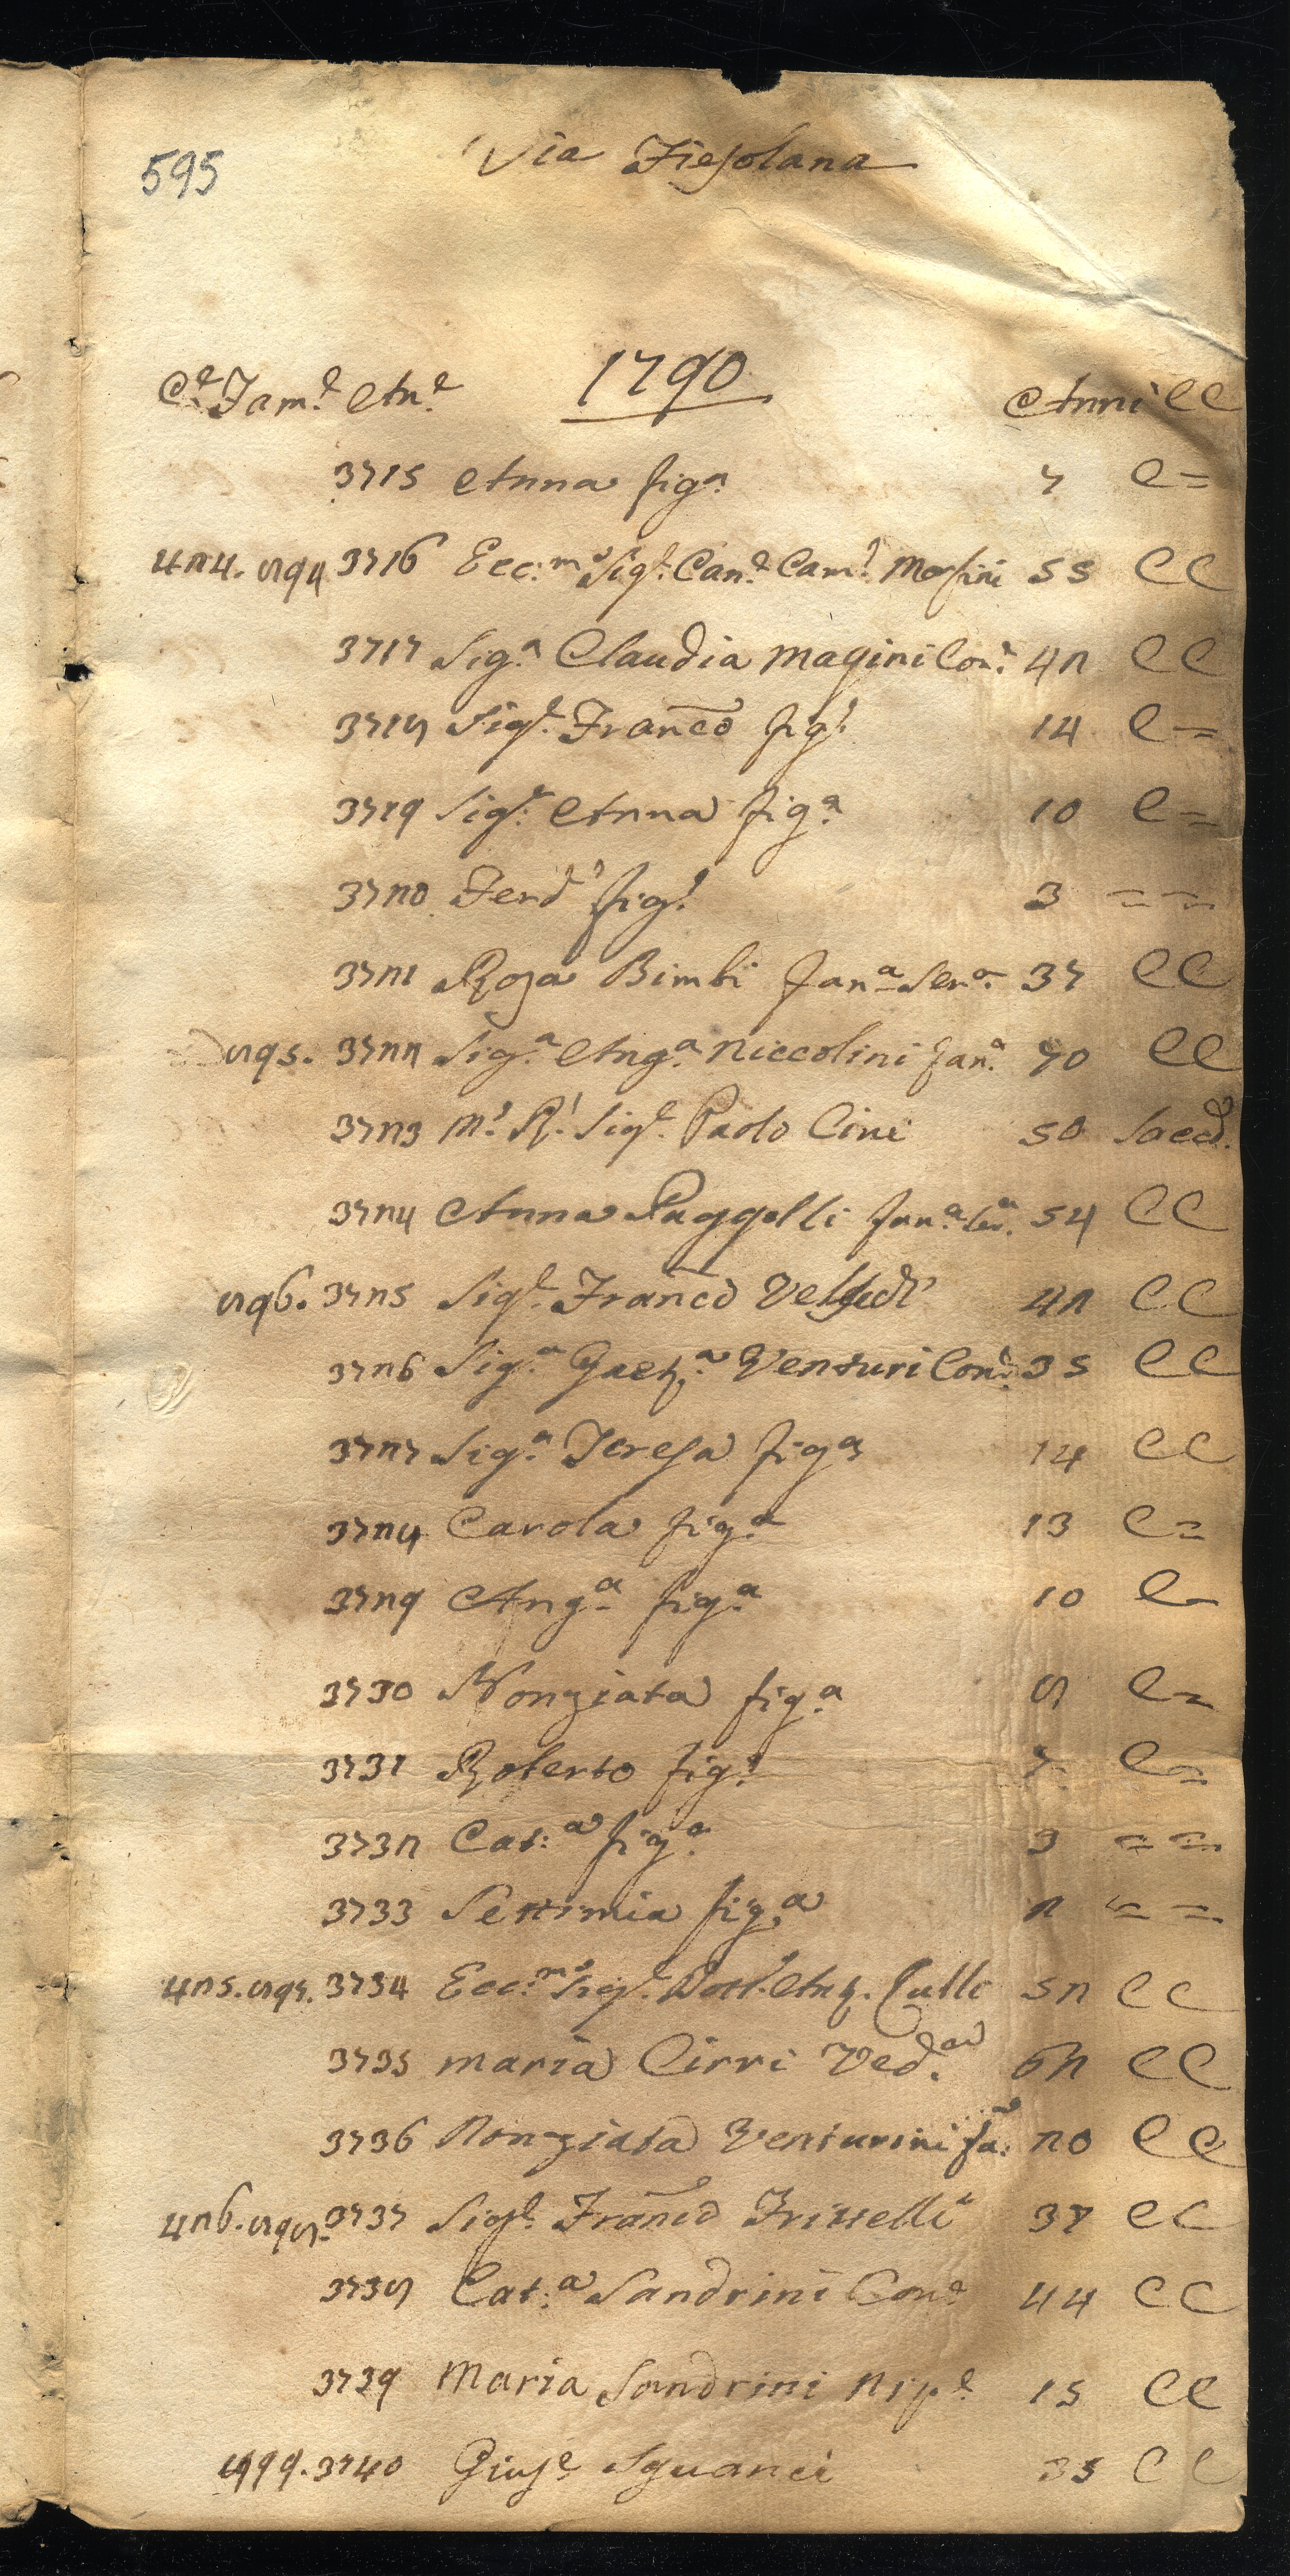 595
Via Fiesolana
C.e Fam.e An.e 1790 Anni CC
3715 Anna fig.a 7 C=
424. 894 3716 Ecc.mo Sig.r Can.e Cam.o Masini 55 CC
3717 Sig.a Claudia Magini Con.e 42 CC
3718 Sig.r Franco fig.o 14 C=
3719 Sig.a Anna fig.a 10 C=
3720 Ferd.o fig.o 3 = =
3721 Rosa Bimbi fan.a Ser.a 37 CC
895. 3722 Sig.a Ang.a Niccolini fan.a 70 CC
3723 M.o R.o Sig.e Paolo Cini 50 Sacd.
3724 Anna Paggelli fan.a Ser.a 54 CC
896. 3725 Sig.e Franco 42 CC
3726 Sig.a Gaet.a Venturi Con.e 35 CC
3727 Sig.a Teresa fig.a 14 CC
3728 Carola fig.a 13 C=
3729 Ang.a fig.a 10 C=
3730 Nonziata fig.a 8 C=
3731 Roberto fig.o 7 C=
3732 Cat.a fig.a 3 = =
3733 Settimia fig.a 2 = =
425. 897. 3734 Ecc.mo Sig.e Dott. Ant. 52 CC
3735 Maria Cirri Ved.a 62 CC
3736 Nonziata Venturini fa: 20 CC
426. 898. 3737 Sig.e Franco Frittelli 37 CC
3738 Cat.a Sandrini Con.e 44 CC
3739 Maria Sandrini Nip.e 15 CC
899. 3740 Gius.e Sguanci 35 CC